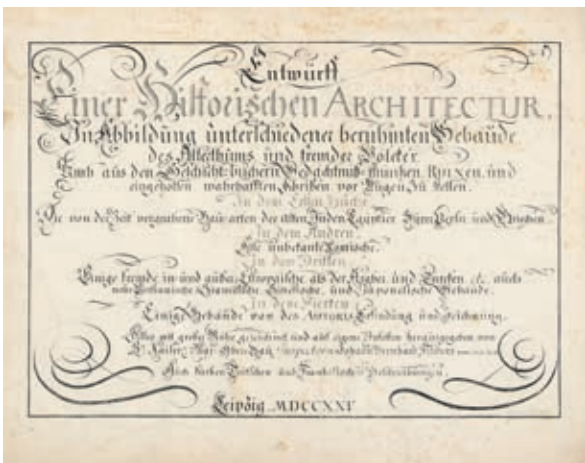 Entwurff
Einer Historischen ARCHITECTUR,
In Abbildung unterschiedener berühmten Gebäude
des Alterthums und fremder Völcker
Umb aus den Geschicht-büchern Gedächtnüß-müntzen, RUINEN, und
eingeholten wahrhafften Abrißen vor Augen zu stellen.
In dem Ersten Buche
Die von der Zeit vergrabene Bau-arten der alten Juden Egyptier Syrer Perser und Griechen.
In dem Andren.
Alte unbekante Römische.
In dem Dritten
Einige fremde in und außer-Europäische als der Araber und Türcken etc. auch
neue Persianische Siamitische, Sinesische, und Japonesische Gebäude.
In dem Vierten
Einige Gebäude von des AUTORIS Erfindung und Zeichnung.
Alles mit großer Mühe gezeichnet und auf eigene herausgegeben von
Johann Bernhard Fischers
Auch kurtzen Teutschen und Frantzösischen Beschreibungen.
Leipzig MDCCXXV